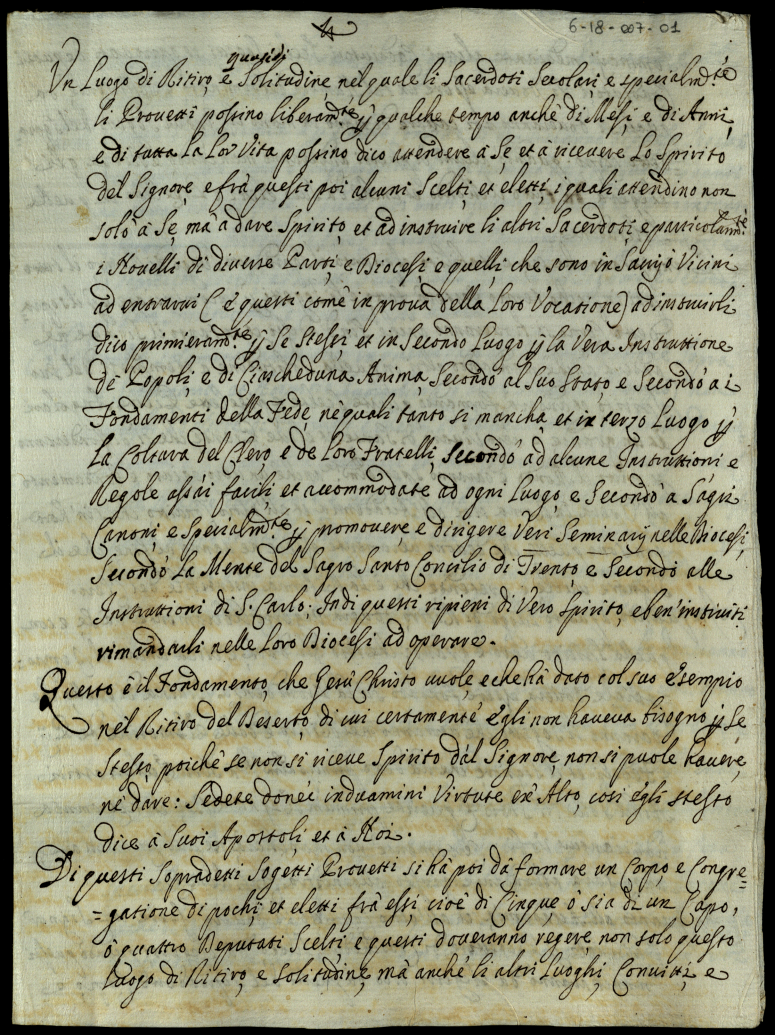 6-18-007-01
quasi di
Un Luogo di Ritiro, e Solitudine nel quale li Sacerdoti Secolari e specialm.te
li Provetti possino liberam.te p qualche tempo anche di Mesi e di Anni,
e di tutta La Lor Vita possino dico attendere à Se, et à ricevere Lo Spirito
del Signore, e frà questi poi alcuni Scelti, et eletti, i quali attendino non
solo à Se, mà à dare Spirito, et ad instruire li altri Sacerdoti, e particolarm.te
i Novelli di diverse Parti, e Diocesi, e quelli che sono in Sacris ò Vicini
ad entrarvi (e questi come in prova della Loro Vocatione) ad instruirli
dico primieram.te p Se Stessi, et in Secondo Luogo p la Vera Instruttione
de Popoli, e di Ciascheduna Anima, Secondo al Suo Stato, e Secondo a i
Fondamenti della Fede, ne quali tanto si mancha, et in terzo Luogo p
La Coltura del Clero, e de Loro Fratelli, secondo ad alcune Instruttioni e
Regole assai facili, et accommodate ad ogni Luogo, e Secondo a Sagri
Canoni e specialm.te p promovere, e dirigere Veri Seminarij nelle Diocesi,
Secondo La Mente del Sagro Santo Concilio di Trento, e Secondo alle
Instruttioni di S. Carlo; Indi questi ripieni di Vero Spirito, e ben' instruiti
rimandarli nelle Loro Diocesi ad operare.
Questo è il Fondamento, che Gesù Christo vuole, e che hà dato col suo Esempio
nel Ritiro del Deserto, di cui certamente Egli non haveva bisogno p Se
Stesso, poiche se non si riceve Spirito dal Signore, non si puole havere,
ne dare: Sedete donec induamini Virtute ex Alto, così Egli stesso
dice à Suoi Apostoli et à Noi.
Di questi Sopradetti Sogetti Provetti si hà poi dà formare un Corpo, e Congre=
=gatione di pochi, et eletti frà essi, cioè di Cinque ò sia di un Capo,
ò quattro Deputati Scelti, e questi doveranno regere, non solo questo
Luogo di Ritiro, e solitudine, mà anche li altri Luoghi, Convitti, e